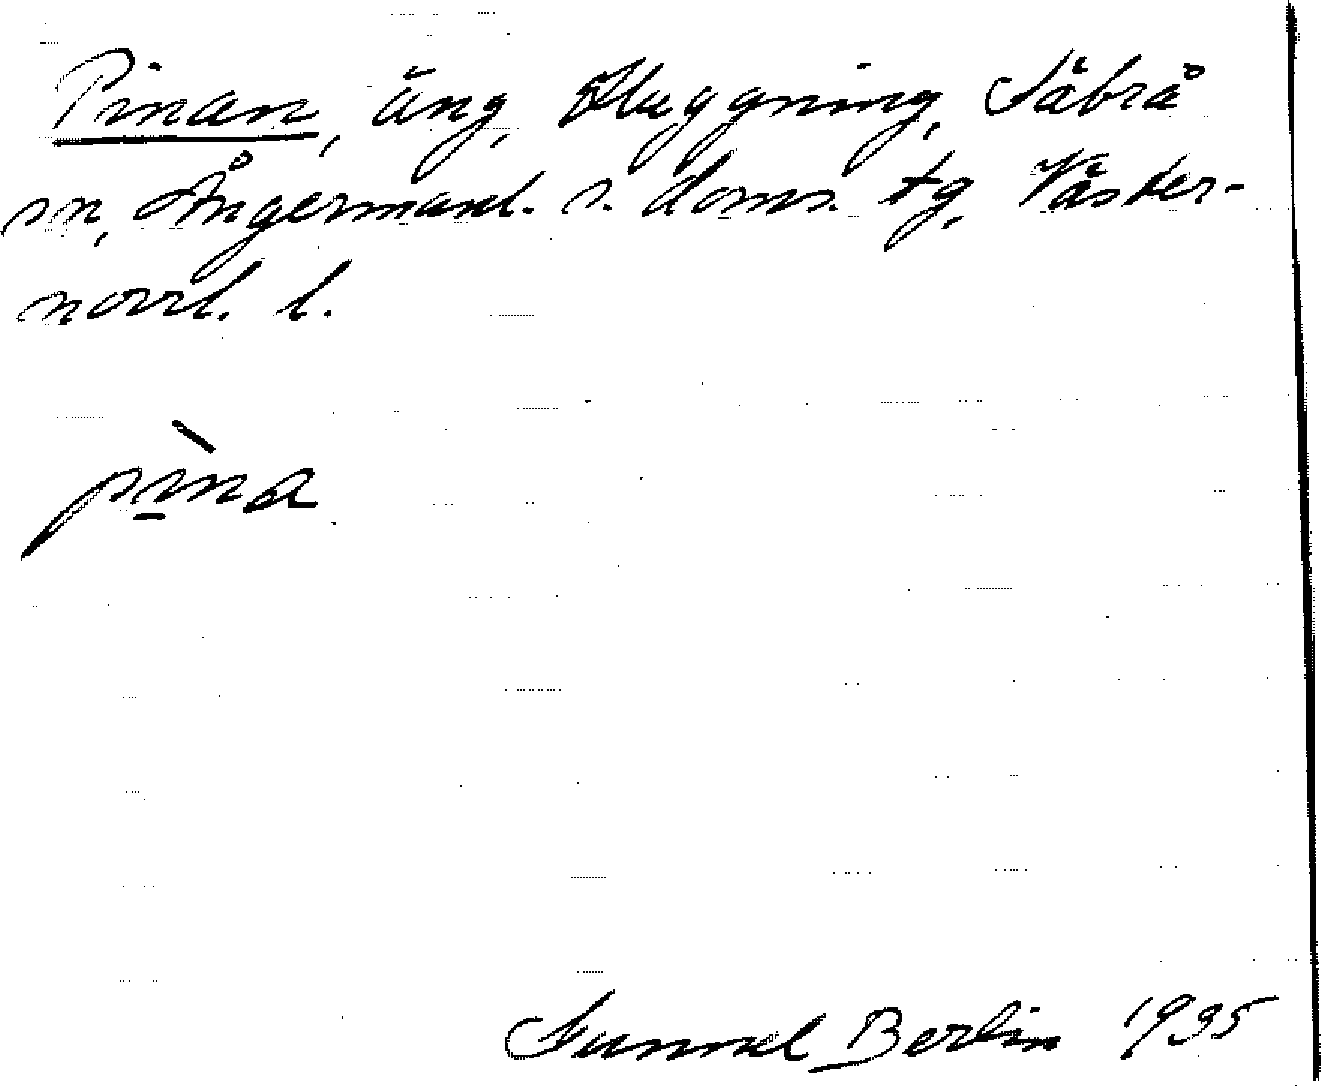 Pinan, äng, Huggning, Säbrå
sn, Ångermanl. s. doms. tg, Väster-
norrl. l.
pìna
Gunnel Berlin 1935